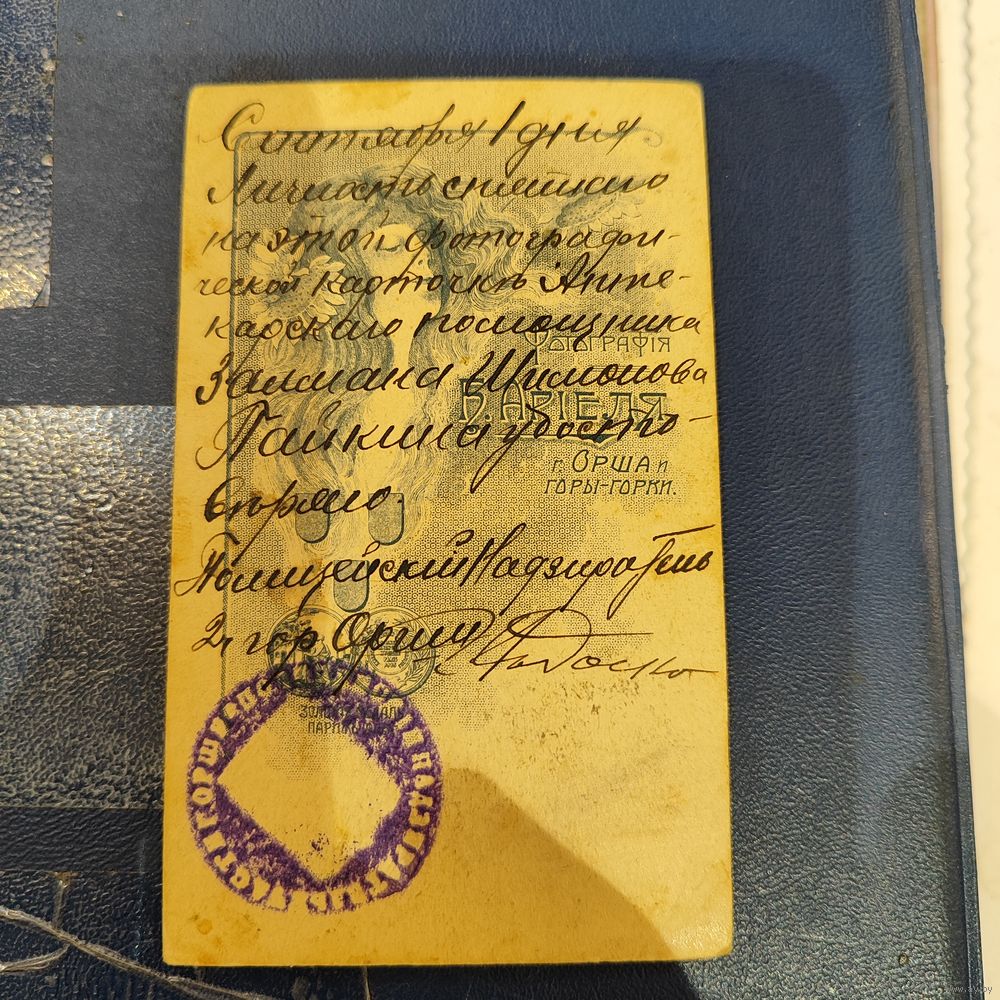 Сентября 1 дня
Личность снятаго
на этой фотографи-
ческой карточкѣ Апте-
карскаго помощника
Залмана Шимонова
Пайкина удосто-
вѣряю.
Полицейскій Надзиратель
2 ч гор Орши
ФОТОГРАФІЯ
Б. АРІЕЛЯ
г. ОРША и
ГОРЫ-ГОРКИ.